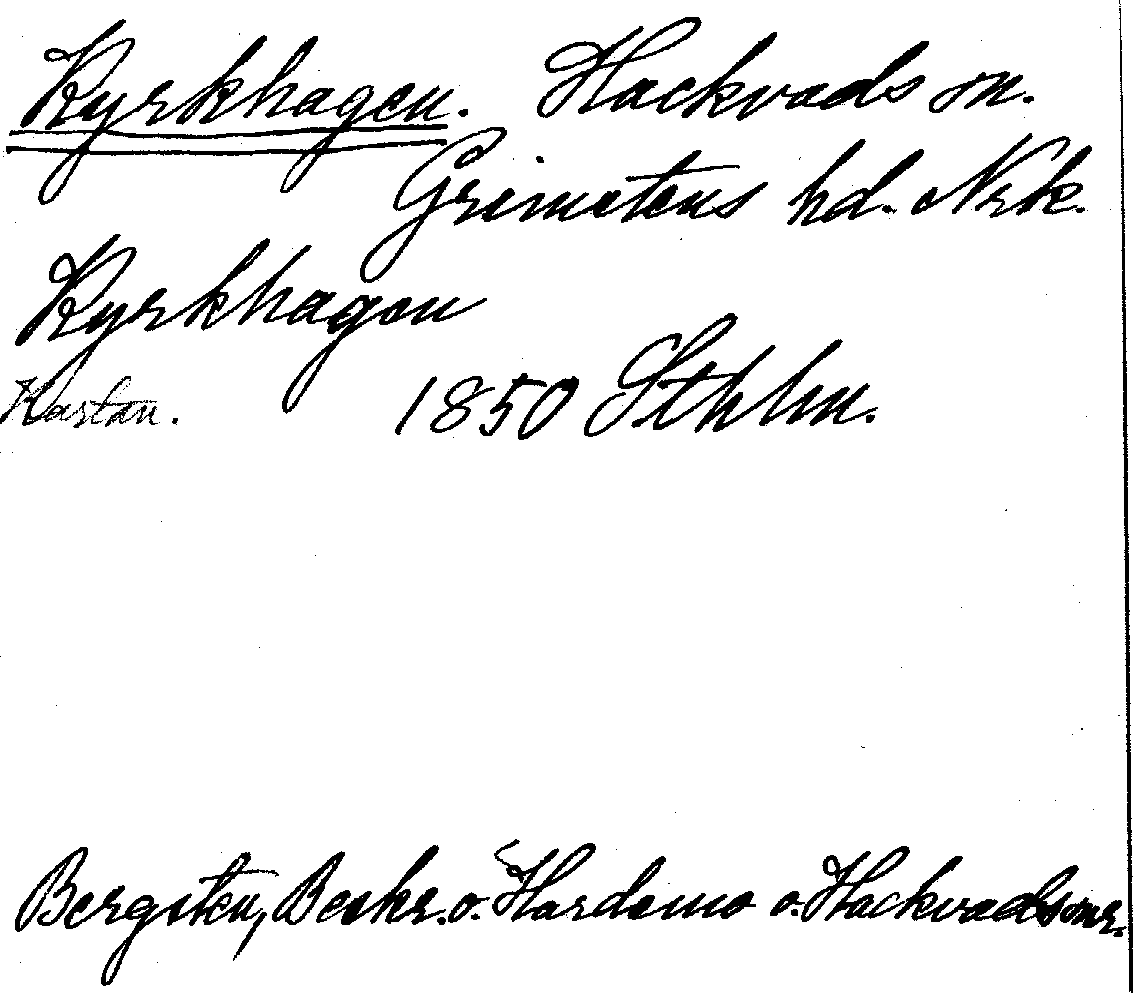 Kyrkhagen. Hackvads sn.
Grimstens hd. Nrk.
Kyrkhagen
Kastan. 1850 Sthlm.
Bergsten, Beskr. o. Hardemo o. Hackvads snr.